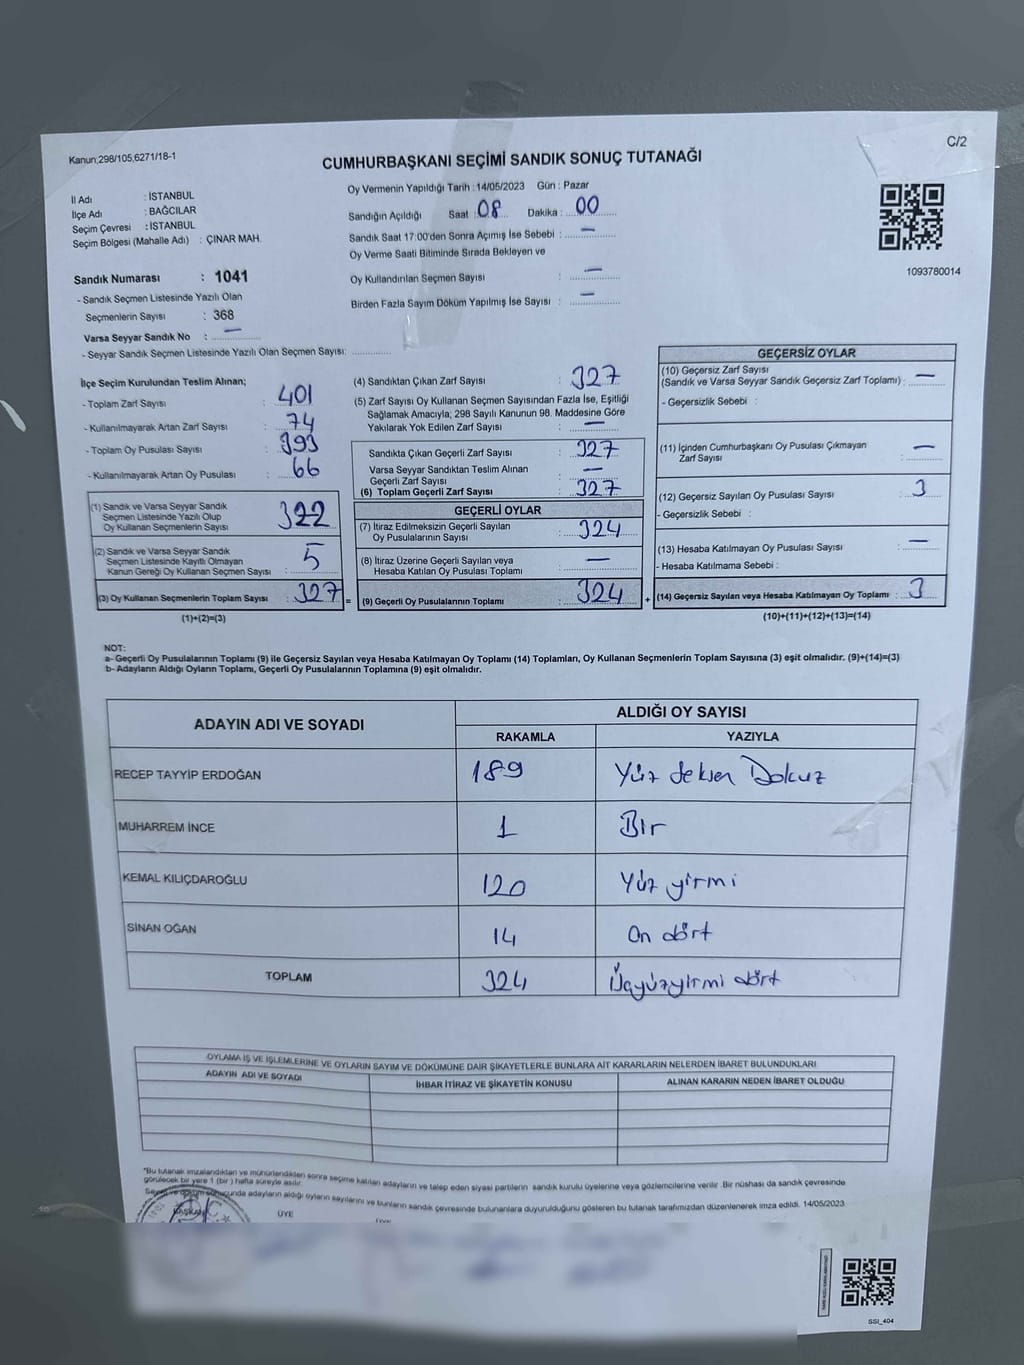 Kanun;298/105,6271/18-1
C/2
CUMHURBAŞKANI SEÇİMİ SANDIK SONUÇ TUTANAĞI
İl Adı : İSTANBUL
İlçe Adı : BAĞCILAR
Seçim Çevresi : İSTANBUL
Seçim Bölgesi (Mahalle Adı) : ÇINAR MAH.
Sandık Numarası : 1041
- Sandık Seçmen Listesinde Yazılı Olan
Seçmenlerin Sayısı : 368
Varsa Seyyar Sandık No : —
- Seyyar Sandık Seçmen Listesinde Yazılı Olan Seçmen Sayısı:
Oy Vermenin Yapıldığı Tarih : 14/05/2023 Gün : Pazar
Sandığın Açıldığı Saat : 08 Dakika : 00
Sandık Saat 17:00'den Sonra Açımış İse Sebebi : —
Oy Verme Saati Bitiminde Sırada Bekleyen ve
Oy Kullandırılan Seçmen Sayısı : —
Birden Fazla Sayım Döküm Yapılmış İse Sayısı : —
1093780014
İlçe Seçim Kurulundan Teslim Alınan;
- Toplam Zarf Sayısı : 401
- Kullanılmayarak Artan Zarf Sayısı : 74
- Toplam Oy Pusulası Sayısı : 393
- Kullanılmayarak Artan Oy Pusulası : 66
(1) Sandık ve Varsa Seyyar Sandık
Seçmen Listesinde Yazılı Olup
Oy Kullanan Seçmenlerin Sayısı : 322
(2) Sandık ve Varsa Seyyar Sandık
Seçmen Listesinde Kayıtlı Olmayan
Kanun Gereği Oy Kullanan Seçmen Sayısı : 5
(3) Oy Kullanan Seçmenlerin Toplam Sayısı : 327 =
(1)+(2)=(3)
(4) Sandıktan Çıkan Zarf Sayısı : 327
(5) Zarf Sayısı Oy Kullanan Seçmen Sayısından Fazla İse, Eşitliği
Sağlamak Amacıyla; 298 Sayılı Kanunun 98. Maddesine Göre
Yakılarak Yok Edilen Zarf Sayısı : —
Sandıkta Çıkan Geçerli Zarf Sayısı : 327
Varsa Seyyar Sandıktan Teslim Alınan
Geçerli Zarf Sayısı : —
(6) Toplam Geçerli Zarf Sayısı : 327
GEÇERLİ OYLAR
(7) İtiraz Edilmeksizin Geçerli Sayılan
Oy Pusulalarının Sayısı : 324
(8) İtiraz Üzerine Geçerli Sayılan veya
Hesaba Katılan Oy Pusulası Toplamı : —
(9) Geçerli Oy Pusulalarının Toplamı : 324 +
GEÇERSİZ OYLAR
(10) Geçersiz Zarf Sayısı
(Sandık ve Varsa Seyyar Sandık Geçersiz Zarf Toplamı) : —
- Geçersizlik Sebebi :
(11) İçinden Cumhurbaşkanı Oy Pusulası Çıkmayan
Zarf Sayısı : —
(12) Geçersiz Sayılan Oy Pusulası Sayısı : 3
- Geçersizlik Sebebi :
(13) Hesaba Katılmayan Oy Pusulası Sayısı : —
- Hesaba Katılmama Sebebi :
(14) Geçersiz Sayılan veya Hesaba Katılmayan Oy Toplamı : 3
(10)+(11)+(12)+(13)=(14)
NOT:
a- Geçerli Oy Pusulalarının Toplamı (9) ile Geçersiz Sayılan veya Hesaba Katılmayan Oy Toplamı (14) Toplamları, Oy Kullanan Seçmenlerin Toplam Sayısına (3) eşit olmalıdır. (9)+(14)=(3)
b- Adayların Aldığı Oyların Toplamı, Geçerli Oy Pusulalarının Toplamına (9) eşit olmalıdır.
ADAYIN ADI VE SOYADI ALDIĞI OY SAYISI
RAKAMLA YAZIYLA
RECEP TAYYİP ERDOĞAN 189 Yüz seksen Dokuz
MUHARREM İNCE 1 Bir
KEMAL KILIÇDAROĞLU 120 Yüz yirmi
SİNAN OĞAN 14 On dört
TOPLAM 324 Üçyüzyirmi dört
OYLAMA İŞ VE İŞLEMLERİNE VE OYLARIN SAYIM VE DÖKÜMÜNE DAİR ŞİKAYETLERLE BUNLARA AİT KARARLARIN NELERDEN İBARET BULUNDUKLARI
ADAYIN ADI VE SOYADI İHBAR İTİRAZ VE ŞİKAYETİN KONUSU ALINAN KARARIN NEDEN İBARET OLDUĞU
*Bu tutanak imzalandıktan ve mühürlendikten sonra seçime katılan adayların ve talep eden siyasi partilerin sandık kurulu üyelerine veya gözlemcilerine verilir. Bir nüshası da sandık çevresinde
görülecek bir yere 1 (bir) hafta süreyle asılır.
Sayım ve döküm sonucunda adayların aldığı oyların sayılarını ve bunların sandık çevresinde bulunanlara duyurulduğunu gösteren bu tutanak tarafımızdan düzenlenerek imza edildi. 14/05/2023
BAŞKAN ÜYE
SSI_404